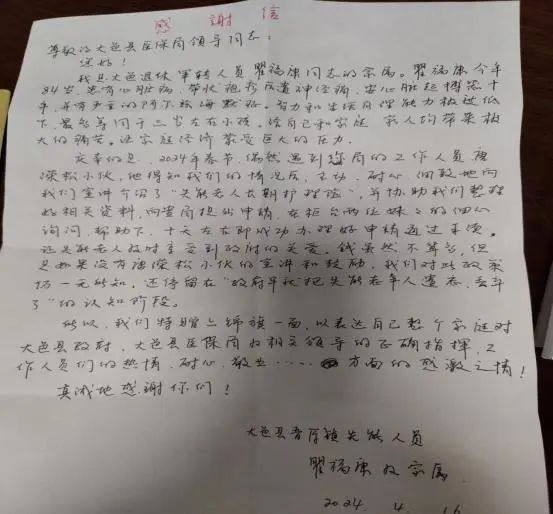 感謝信
尊敬的大邑县医保局领导同志：
您好！
我是大邑退休军转人员瞿福康同志的家属。瞿福康今年
84岁，患有心脏病、带状疱疹后遗神经痛，安心脏起搏器十
年，并有严重的阿尔茨海默症。智力和生活自理能力极速低
下，最多等同于三岁左右小孩。给自己和家庭、家人均带来极
大的痛苦。使家庭经济蒙受巨大的压力。
庆幸的是，2024年春节，偶然遇到您局的工作人员唐
深松小伙，他得知我们的情况后，主动、耐心、细致地向
我们宣讲介绍了“失能老人长期护理险”，并协助我们整理
好相关资料，向贵局提出申请，在柜台两位妹妹的细心
询问、帮助下，十天左右即成功办理好申请通过手续。
让失能老人及时享受到政府的关爱。钱虽然不算多，但
是如果没有唐深松小伙的宣讲和鼓励，我们对此政策
仍一无所知，还停留在“政府早就把失能老年人遗忘、丢弃
了”的认知阶段。
所以，我们特赠上锦旗一面，以表达自己整个家庭对
大邑县政府、大邑县医保局及相关领导的正确指挥，工
作人员们的热情、耐心、敬业……方面的感激之情！
真诚地感谢你们！
大邑县晋原镇失能人员
瞿福康及家属
2024. 4. 16